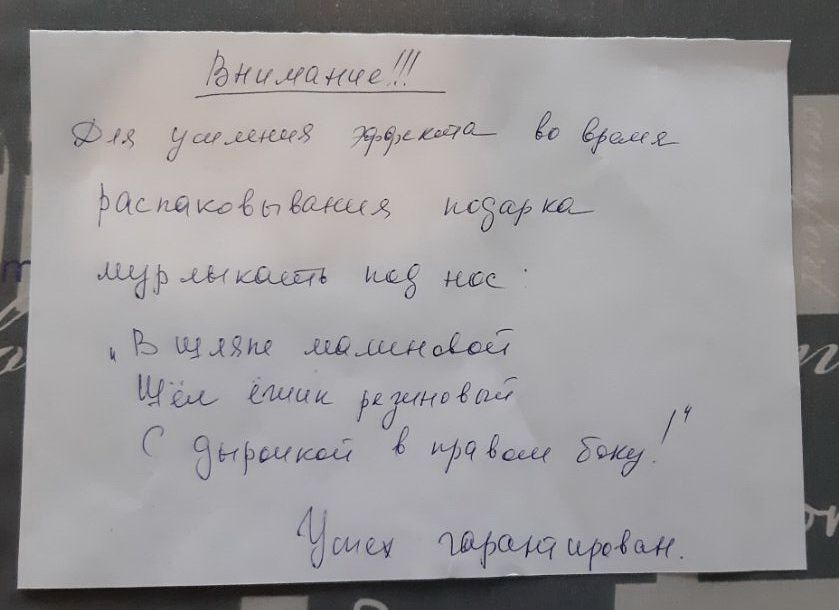 Внимание!!!
Для усиления эффекта во время
распаковывания подарка
мурлыкать под нос:
„В шляпе малиновой
Шёл ёжик резиновый
С дырочкой в правом боку!"
Успех гарантирован.